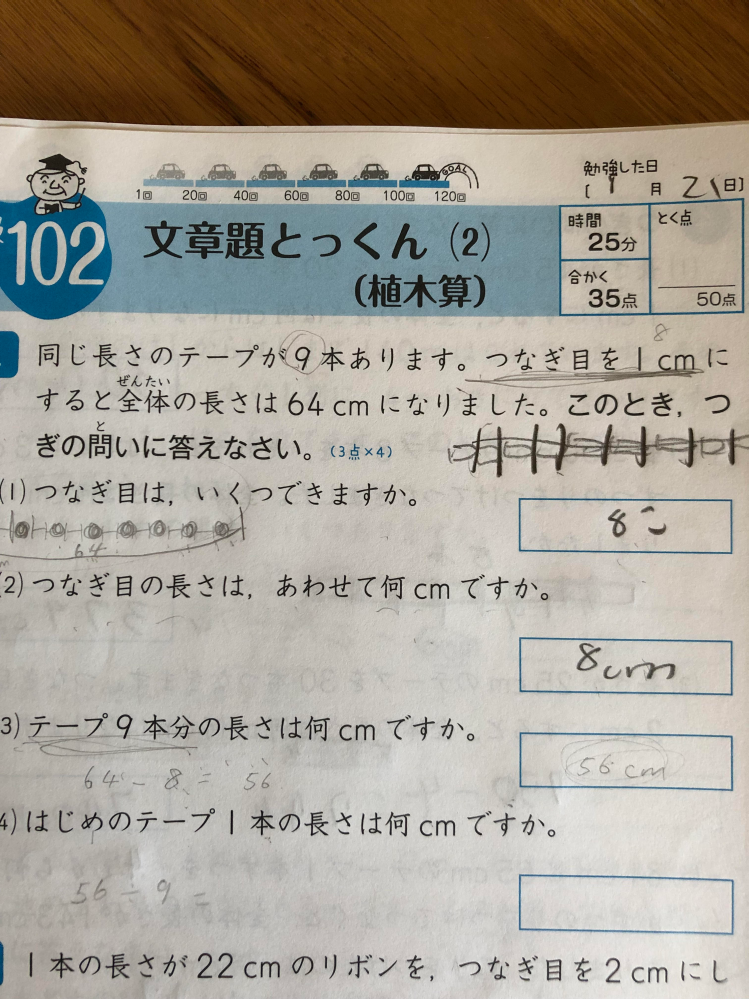 GOAL
1回 20回 40回 60回 80回 100回 120回
勉強した日
[ 1月 21日]
102
文章題とっくん(2)
(植木算)
時間
25分
合かく
35点
とく点
50点
8
同じ長さのテープが9本あります。つなぎ目を1cmに
ぜんたい
すると全体の長さは64cmになりました。このとき,つ
と
ぎの問いに答えなさい。(3点×4)
(1)つなぎ目は,いくつできますか。
8こ
64
(2)つなぎ目の長さは,あわせて何cmですか。
8cm
3)テープ9本分の長さは何cmですか。
64-8=56
56cm
4)はじめのテープ1本の長さは何cmですか。
56÷9=
1本の長さが22cmのリボンを,つなぎ目を2cmにし